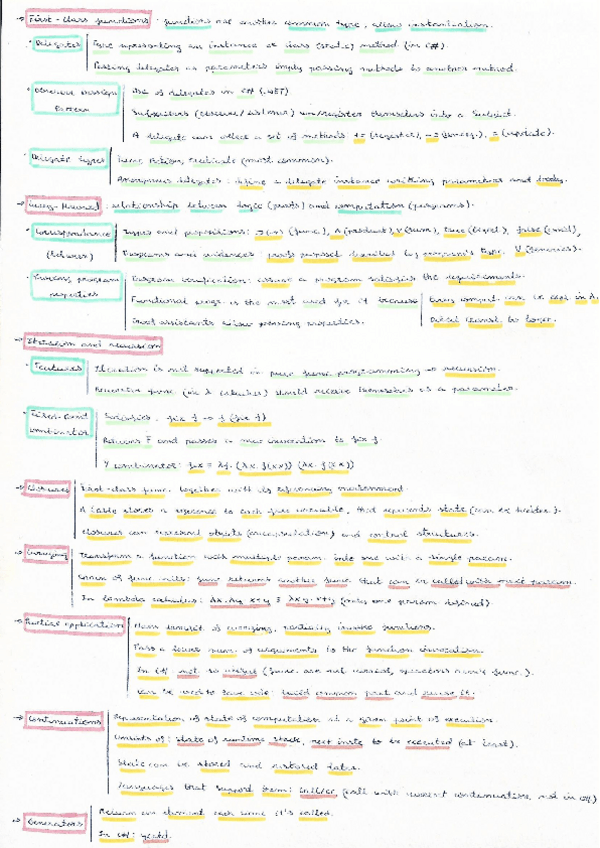 → First-class functions: functions are another common type, allow instantiation.
· Delegates | Type representing an instance or class (static) method (in C#).
Passing delegates as parameters imply passing methods to another method.
· Observer Design Pattern | Use of delegates in C# (.NET)
Subscribers (observer / listener) un/register themselves into a Subject.
A delegate can collect a set of methods. += (register), -= (unreg.), = (update).
· Delegate types | Func, Action, Predicate (most common).
Anonymous delegates: define a delegate instance writing parameters and body.
→ Curry-Howard: relationship between logic (proofs) and computation (programs).
· Correspondence | Types and propositions: (func), ∧ (product), ∨ (sum), true (), false (void),
(echoes) | Programs and evidences: proofs proposed described by program's type. ∀ (generics).
· Express program properties | Program verification: assure a program satisfies the requirements.
Functional progr. is the most used for it because | Every comput. can be expr. in λ.
Proof assistants allow proving properties. |
→ Iteration and recursion
· Features | Iteration is not supported in pure func. programming → recursion.
Recursive func. (in λ calculus) should receive themselves as a parameter.
· Fixed-Point combinator | Satisfies, fix f → f (fix f)
Returns f and passes a new invocation to fix f.
Y combinator: fix = λf. (λx. f(xx)) (λx. f(xx))
→ Closures | First-class func. together with its referencing environment.
A table stores a reference to each free variable, that represents state (can be ).
Closures can represent objects (encapsulation) and control structures.
→ Currying | Transform a function with multiple param. into one with a single param.
Chain of func. calls: func returns another func. that can be called with next param.
In lambda calculus: λx. λy. x+y ≡ λxy. x+y (only one param allowed)
→ Partial application | of currying, partially invoke functions.
Pass a fewer num. of arguments to the function invocation.
In C# not so useful (func. are not curried, operators aren't func.).
Can be used to save code: build common part and reuse it.
→ Continuations | Representation of state of computation at a given point of execution.
Consists of: state of runtime stack, next instr. to be executed (at least).
State can be stored and restored later.
Languages that support them: call/cc (call with current continuation, not in C#)
→ Generators | Return on demand each time it's called.
In C#: yield.